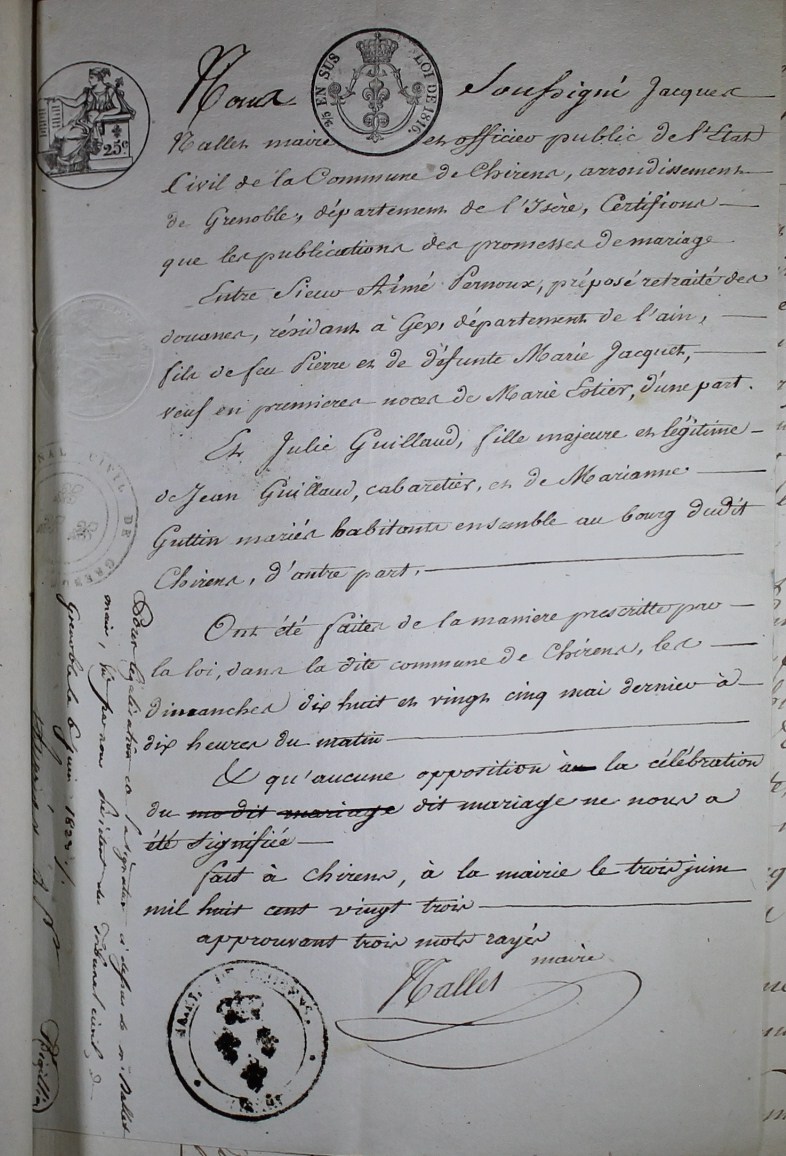 25c
95 EN SUS LOI DE 1816.
Nous Soussigné Jacques
Nallet maire et officier public de l'Etat
Civil de la Commune de Chirens, arrondissement
de Grenoble, département de l'Isère, Certifions
que les publications des promesses de mariage
Entre Sieur Aimé Pernoux, préposé retraité des
douanes, résidant à Gex, département de l'ain,
fils de feu Pierre et de défunte Marie Jacquet,
veuf en premieres noces de Marie Estier, d'une part.
Et Julie Guillaud, fille majeure et légitime
de Jean Guillaud, cabaretier, et de Marianne
Guttin mariés habitants ensemble au bourg dudit
Chirens, d'autre part,
Ont été faites de la maniere prescritte par
la loi, dans la dite commune de Chirens, les
dimanches dix huit et vingt cinq mai dernier à
dix heures du matin
& qu'aucune opposition à la célébration
du dit mariage ne nous a
été signifiée
fait à Chirens, à la mairie le trois juin
mil huit cent vingt trois
approuvant trois mots rayés
Nallet maire
CIVIL DE
Pour légalisation de la signature ci dessus de Mr Nallet
maire, par nous président du Tribunal civil de
Grenoble 6 juin 1823